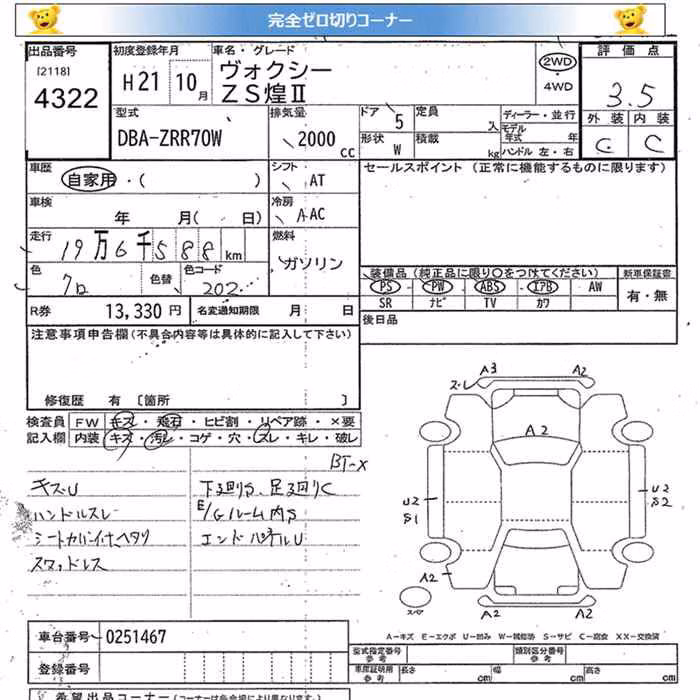 完全ゼロ切りコーナー
出品番号 初度登録年月 車名・グレード 評価点
[2118] 4322 H21 10月 ヴォクシー 2WD 3.5
ZS煌Ⅱ 4WD
型式 排気量 ドア 定員 ディーラー・並行 外装 内装
DBA-ZRR70W 2000 cc 5 人 モデル年式 年 C C
形状 積載
W kg ハンドル 左・右
車歴 シフト セールスポイント (正常に機能するものに限ります)
自家用・( ) AT
車検 冷房
年 月( 日) AAC
走行 燃料
19万6千588km ガソリン
色 色替 色コード 装備品 (純正品に限り○をつけてください) 新車保証書
クロ 202 PS PW ABS エアB AW 有・無
SR ナビ TV カワ
R券 13,330 円 名変通知期限 月 日 後日品
注意事項申告欄 (不具合内容等は具体的に記入して下さい)
修復歴 有 [箇所 ]
検査員 FW キズ・飛石・ヒビ割・リペア跡・×要
記入欄 内装 キズ・汚レ・コゲ・穴・スレ・キレ・破レ
BT-X
キズU 下回りS、足回りC
ハンドルスレ E/Gルーム内S
シートカバー付、ヘタリ エンドパネルU
スタッドレス
A3 A2
スレ
A2
U2 U2
S1 S2
A2
スペア A2 A2
A－キズ E－エクボ U－凹み W－補修跡 S－サビ C－腐食 XX－交換済
車台番号 0251467
型式指定番号 参考 類別区分番号 参考
登録番号 車庫証明用 参考 長さ cm 幅 cm 高さ cm
希望出品コーナー (コーナーは各会場により異なります。)